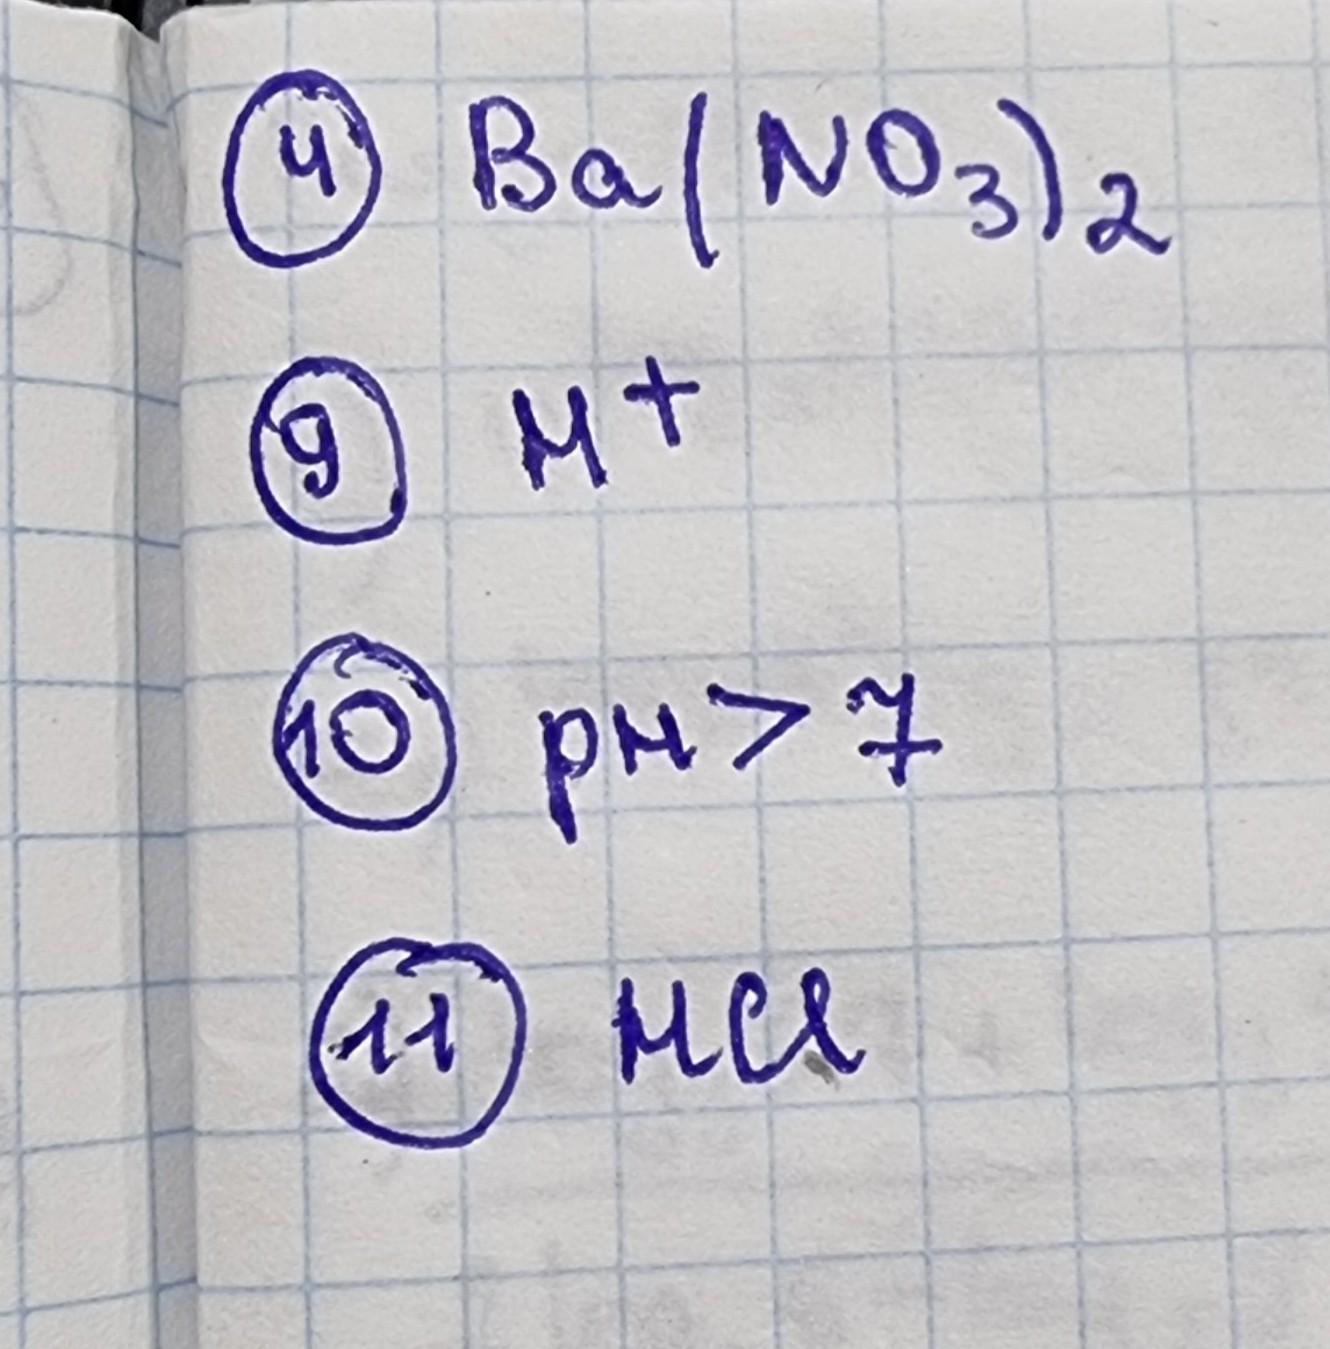 4 Ba(NO₃)₂
9 H⁺
10 pH > 7
11 HCl